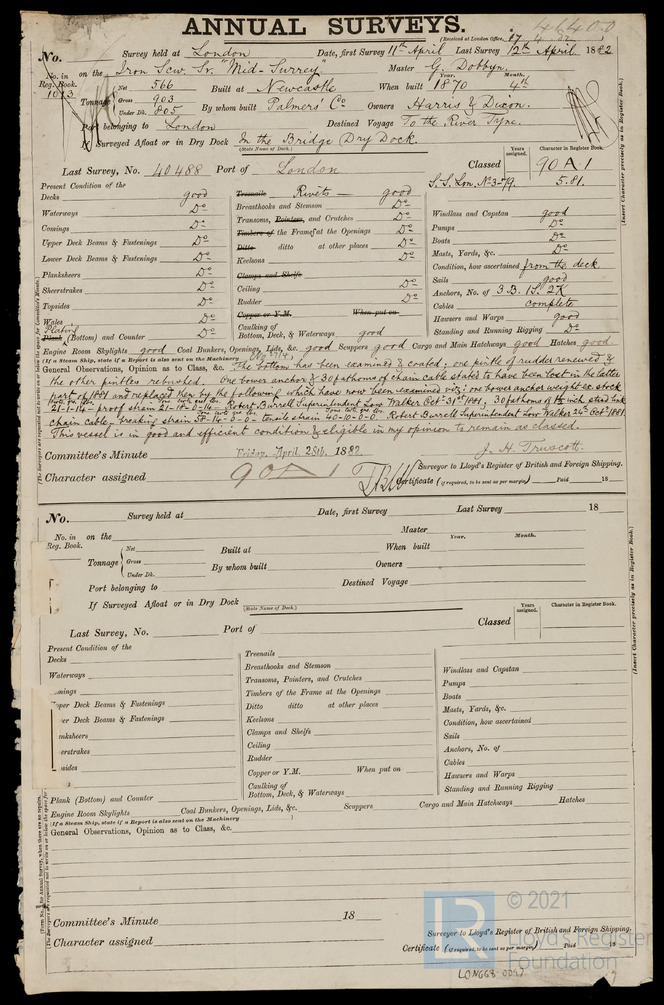 ANNUAL SURVEYS.
46400
(Received at London Office, 17. 4. 82
No. Survey held at London Date, first Survey 11th April Last Survey 12th April 1882
No. in Reg. Book. 1013 on the Iron Scw. Sr. "Mid-Surrey" Master G. Dobbyn
Tonnage Net 566 Built at Newcastle When built Year. 1870 Month. 4th
Gross 903
Under Dk. 805 By whom built Palmers' Co Owners Harris & Dixon.
Port belonging to London Destined Voyage To the River Tyne.
If Surveyed Afloat or in Dry Dock In the Bridge Dry Dock.
(State Name of Dock.)
Last Survey, No. 40488 Port of London Classed
Years assigned. Character in Register Book.
90 A 1
S.S. Lon. No 3-79. 5.81.
Present Condition of the
Decks good
Waterways Do
Comings Do
Upper Deck Beams & Fastenings Do
Lower Deck Beams & Fastenings Do
Planksheers Do
Sheerstrakes Do
Topsides Do
Wales Do
Plating
Plank (Bottom) and Counter Do
Treenails Rivets good
Breasthooks and Stemson Do
Transoms, Pointers, and Crutches Do
Timbers of the Frame at the Openings Do
Ditto ditto at other places Do
Keelsons Do
Clamps and Shelfs
Ceiling Do
Rudder Do
Copper or Y.M. When put on
Caulking of
Bottom, Deck, & Waterways good
Windlass and Capstan good
Pumps Do
Boats Do
Masts, Yards, &c. Do
Condition, how ascertained from the deck
Sails good
Anchors, No. of 3.B. 1S. 2K
Cables complete
Hawsers and Warps good
Standing and Running Rigging Do
Engine Room Skylights good Coal Bunkers, Openings, Lids, &c. good Scuppers good Cargo and Main Hatchways good Hatches good
(If a Steam Ship, state if a Report is also sent on the Machinery
General Observations, Opinion as to Class, &c. The bottom has been examined & coated; one pintle of rudder renewed &
the other pintles rebushed. One bower anchor & 30 fathoms of chain cable stated to have been lost in the latter
part of 1881 and replaced then by the following which have now been examined viz; one bower anchor weight ex stock
21-1-14- proof strain 21-18-0-14- Robert Burrell Superintendent Low Walker Octr 31st 1881; 30 fathoms of inch stud link
chain cable, breaking strain 58-14-0-0- tensile strain 40-10-0-0. Robert Burrell Superintendent Low Walker 24th Octr 1881.
This vessel is in good and efficient condition & eligible in my opinion to remain as classed.
J. H. Truscott.
Committee's Minute Friday, April 28th, 1882
Surveyor to Lloyd's Register of British and Foreign Shipping.
Character assigned 90 A 1
Certificate (if required, to be sent as per margin) Paid 18
No. Survey held at Date, first Survey Last Survey 18
No. in Reg. Book. on the Master
Tonnage Net Built at When built Year. Month.
Gross
Under Dk. By whom built Owners
Port belonging to Destined Voyage
If Surveyed Afloat or in Dry Dock
(State Name of Dock.)
Last Survey, No. Port of Classed
Years assigned. Character in Register Book.
Present Condition of the
Decks
Waterways
omings
pper Deck Beams & Fastenings
wer Deck Beams & Fastenings
nksheers
erstrakes
sides
Plank (Bottom) and Counter
Treenails
Breasthooks and Stemson
Transoms, Pointers, and Crutches
Timbers of the Frame at the Openings
Ditto ditto at other places
Keelsons
Clamps and Shelfs
Ceiling
Rudder
Copper or Y.M. When put on
Caulking of
Bottom, Deck, & Waterways
Windlass and Capstan
Pumps
Boats
Masts, Yards, &c.
Condition, how ascertained
Sails
Anchors, No. of
Cables
Hawsers and Warps
Standing and Running Rigging
Engine Room Skylights Coal Bunkers, Openings, Lids, &c. Scuppers Cargo and Main Hatchways Hatches
(If a Steam Ship, state if a Report is also sent on the Machinery
General Observations, Opinion as to Class, &c.
Committee's Minute 18
Surveyor to Lloyd's Register of British and Foreign Shipping.
Character assigned
Certificate (if required, to be sent as per margin) Paid 18
(Insert Character precisely as in Register Book.)
(Insert Character precisely as in Register Book.)
LR
© 2021
Lloyd's Register
Foundation
LON668-0097